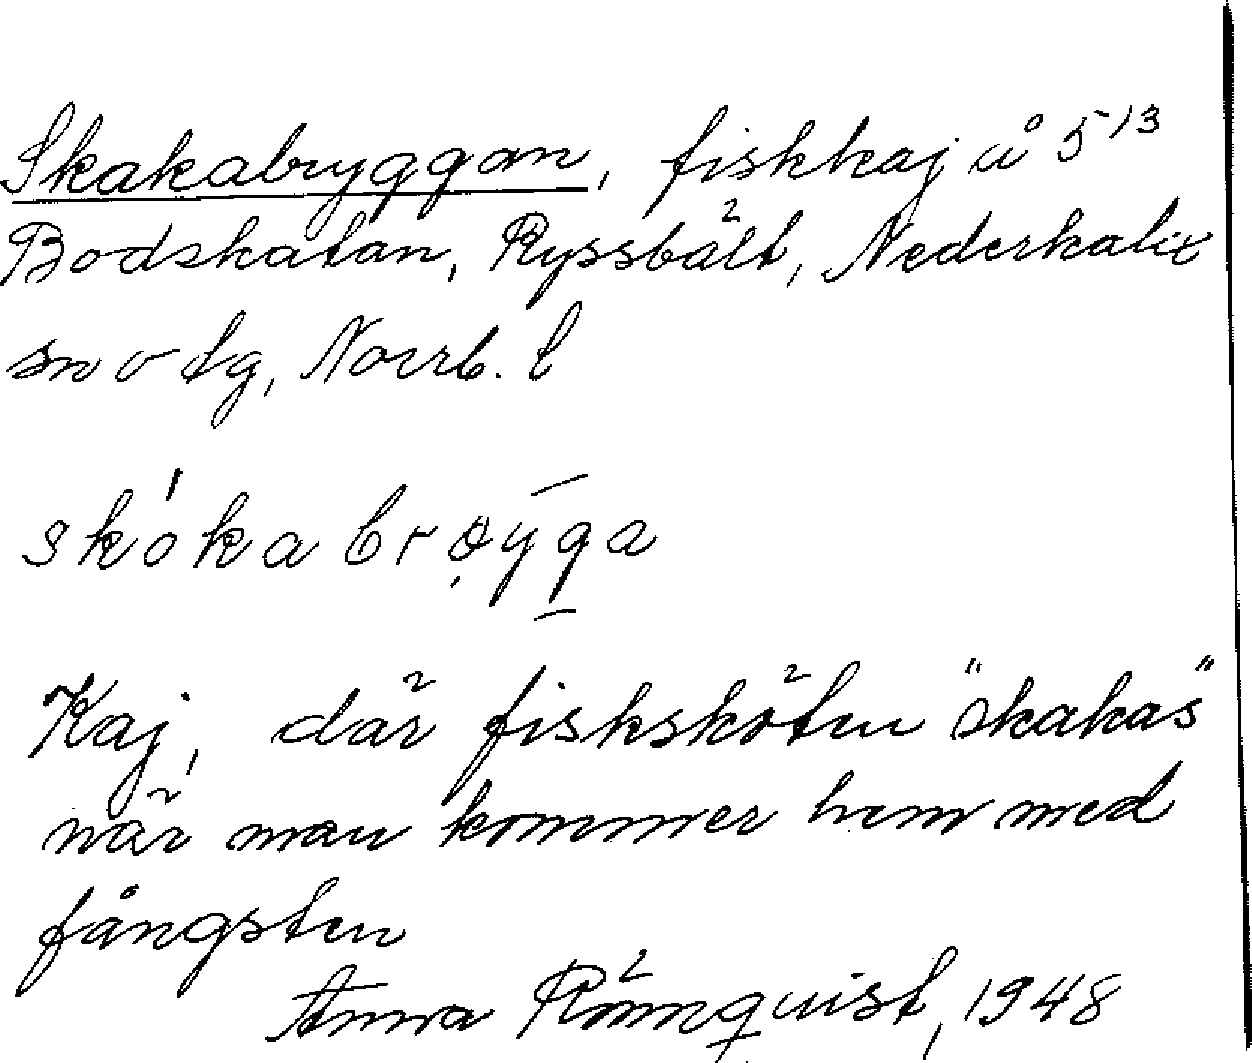 Skakabryggan, fiskkaj å 5 13
Bodskatan, Ryssbält, Nederkalix
sn o tg, Norrb. l
skókabrøy̨ga
Kaj, där fisksköten "skakas"
när man kommer hem med
fångsten
Anna Rönnquist, 1948